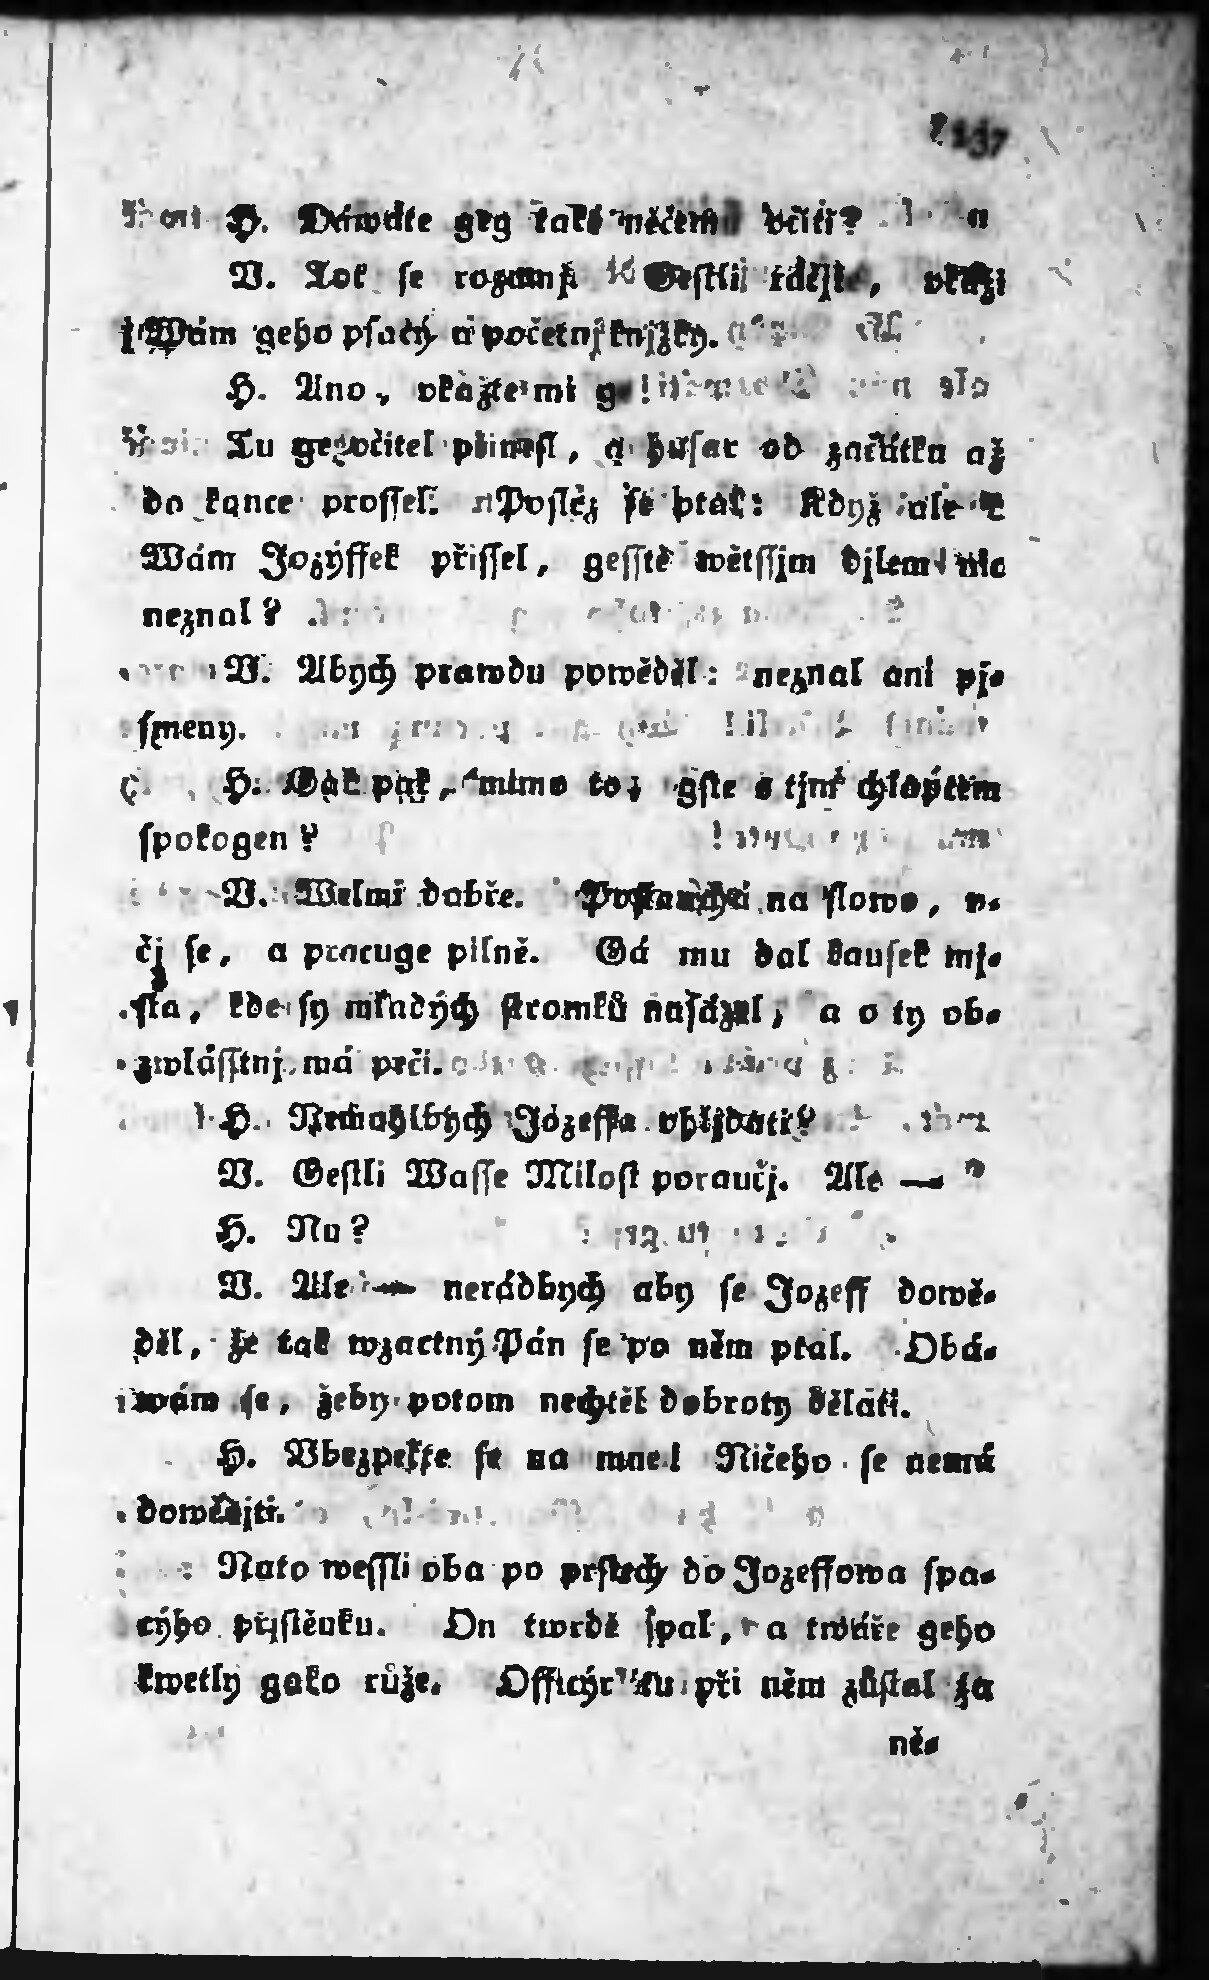 137
H. Dáwáte geg také něčemu včiti?
V. Tok se rozumj! Gestli ráčjte, vkáži
Wám geho psacý a početnj knjžky.
H. Ano, vkažte mi ge!
Tu ge včitel přinesl, a husar od začátku až
do konce prossel. Posléz se ptal: Když ale k
Wám Jozýffek přissel, gesstě wětssjm djlem nic
neznal?
V. Abych prawdu powěděl: neznal ani pj-
smeny.
H. Gak pak, mimo to, gste s tjm chlapcem
spokogen?
V. Welmi dobře. Poslauchá na slowo, v-
čj se, a pracuge pilně. Gá mu dal kausek mj-
sta, kde sy mladých stromků nasázel, a o ty ob-
zwlásstnj má péči.
H. Nemohlbych Jozeffa vhljdati?
V. Gestli Wasse Milost poraučj. Ale —
H. Nu?
V. Ale — nerádbych aby se Jozeff dowě-
děl, že tak wzactný Pán se po něm ptal. Obá-
wám se, žeby potom nechtěl dobroty dělati.
H. Vbezpečte se na mne! Ničeho se nemá
dowědjti.
Nato wessli oba po prstech do Jozeffowa spa-
cýho přjstěnku. On twrdě spal, a twáře geho
kwetly gako růže. Officýr tu při něm zůstal za
ně-